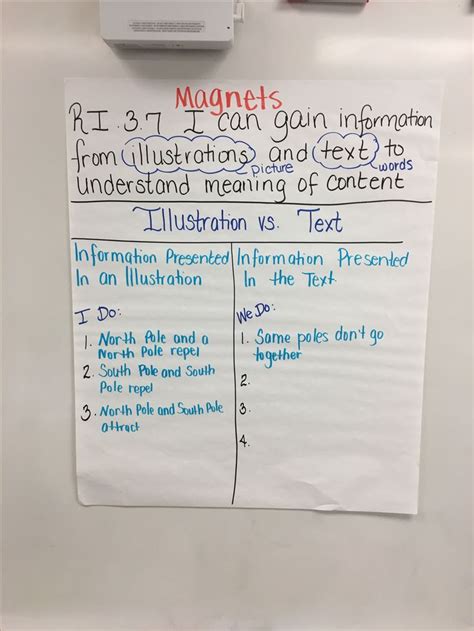 Magnets
RI.3.7 I can gain information
from illustrations and text to
picture
words
understand meaning of content
Illustration vs. Text
Information Presented
In an Illustration
I Do:
1. North Pole and a
North Pole repel
2. South Pole and South
Pole repel
3. North Pole and South Pole
attract
Information Presented
In the Text
We Do:
1. Same poles don't go
together
2.
3.
4.